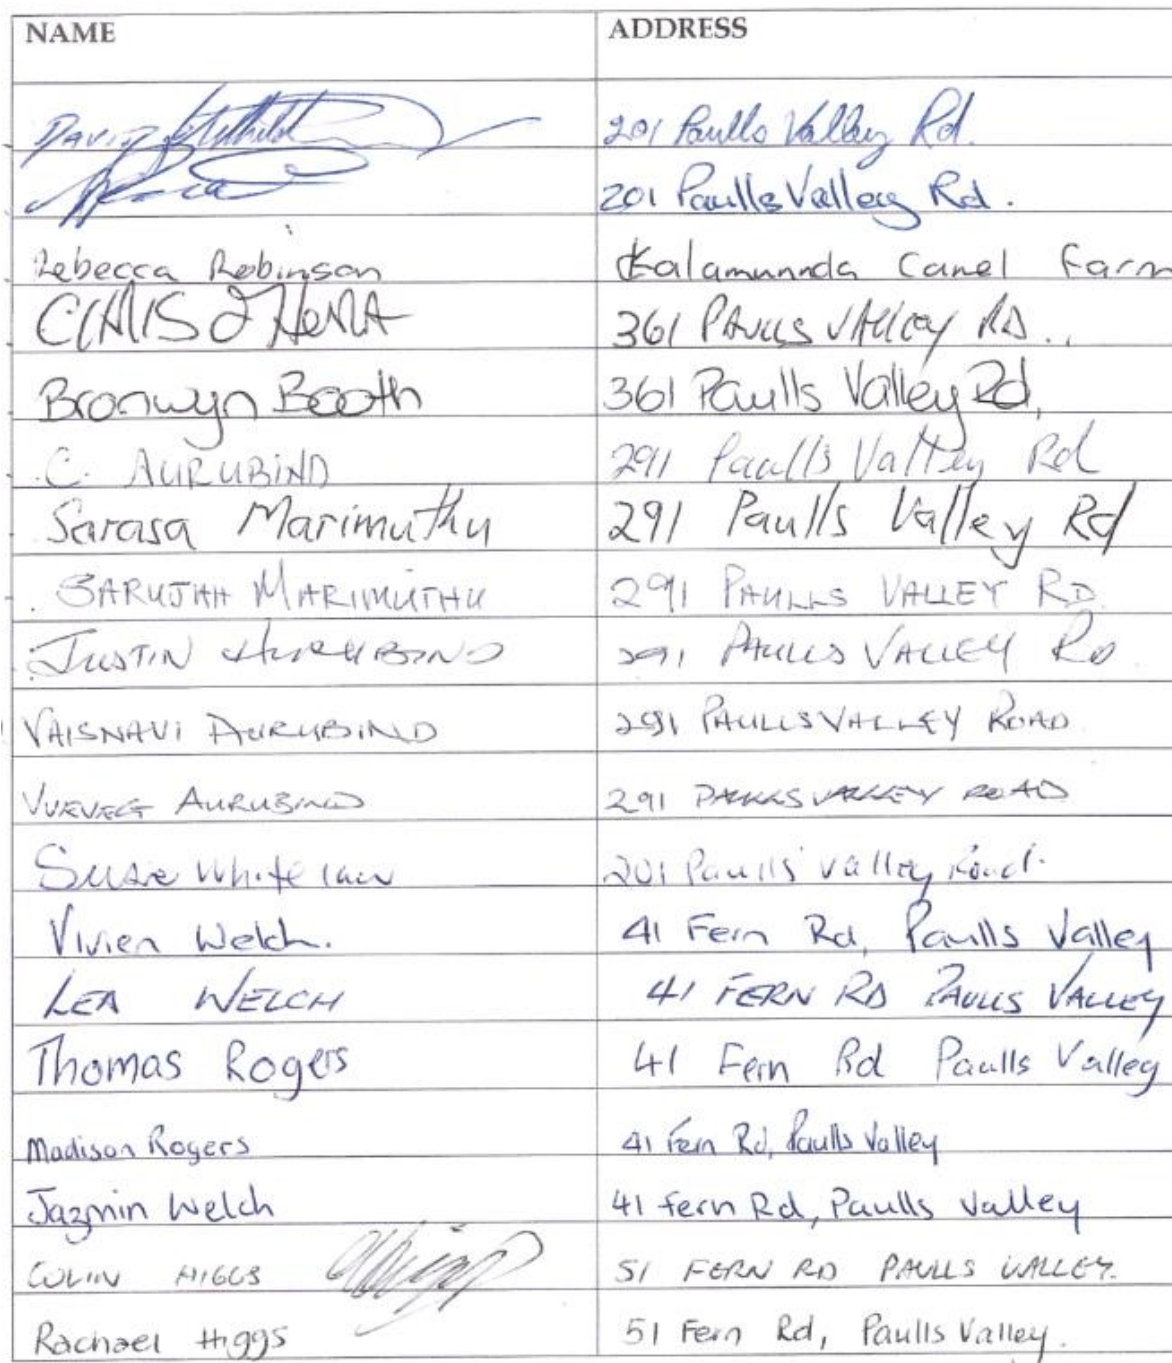 NAME ADDRESS
DAVID 201 Paulls Valley Rd.
201 Paulls Valley Rd.
Rebecca Robinson Kalamunnda Camel Farm
CHRIS O'HARA 361 PAULLS VALLEY RD.
Bronwyn Booth 361 Paulls Valley Rd,
C. AURUBIND 291 Paulls Valley Rd
Sarasa Marimuthu 291 Paulls Valley Rd
SARUJAH MARIMUTHU 291 PAULLS VALLEY RD
JUSTIN AURUBIND 291 PAULLS VALLEY RD
VAISNAVI AURUBIND 291 PAULLS VALLEY ROAD
AURUBIND 291 PAULLS VALLEY ROAD
Susie Whitelaw 201 Paulls Valley Road.
Vivien Welch. 41 Fern Rd, Paulls Valley
LEA WELCH 41 FERN RD PAULLS VALLEY
Thomas Rogers 41 Fern Rd Paulls Valley
Madison Rogers 41 Fern Rd, Paulls Valley
Jazmin Welch 41 Fern Rd, Paulls Valley
COLIN HIGGS 51 FERN RD PAULLS VALLEY.
Rachael Higgs 51 Fern Rd, Paulls Valley.